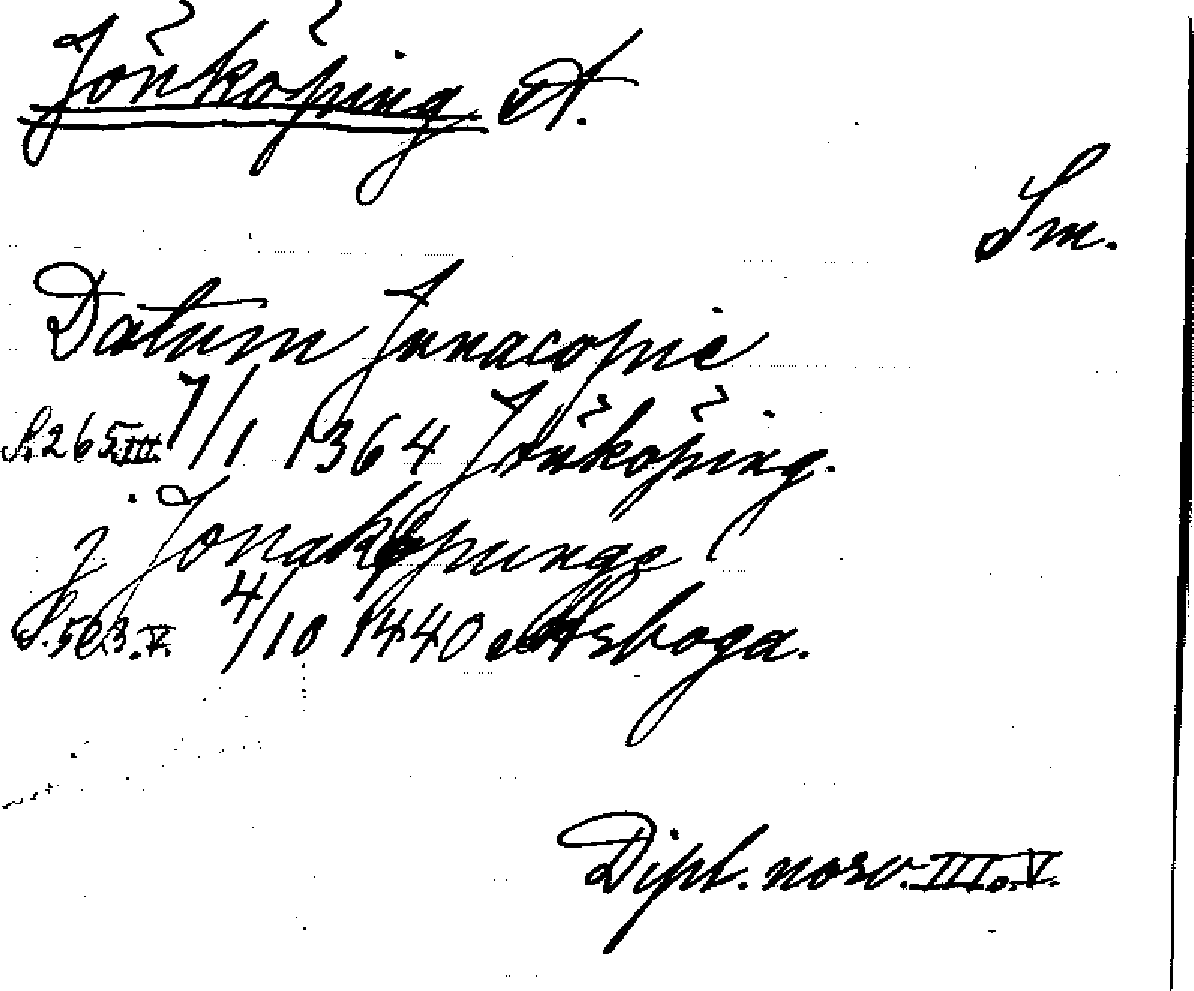 Jönköping St.
Sm.
Datum Junacopie
S. 265 III. 7/1 1364 Jönköping.
j Jonakøpunge
S. 503. V. 4/10 1440 Arboga.
Dipl. norv. III o. V.